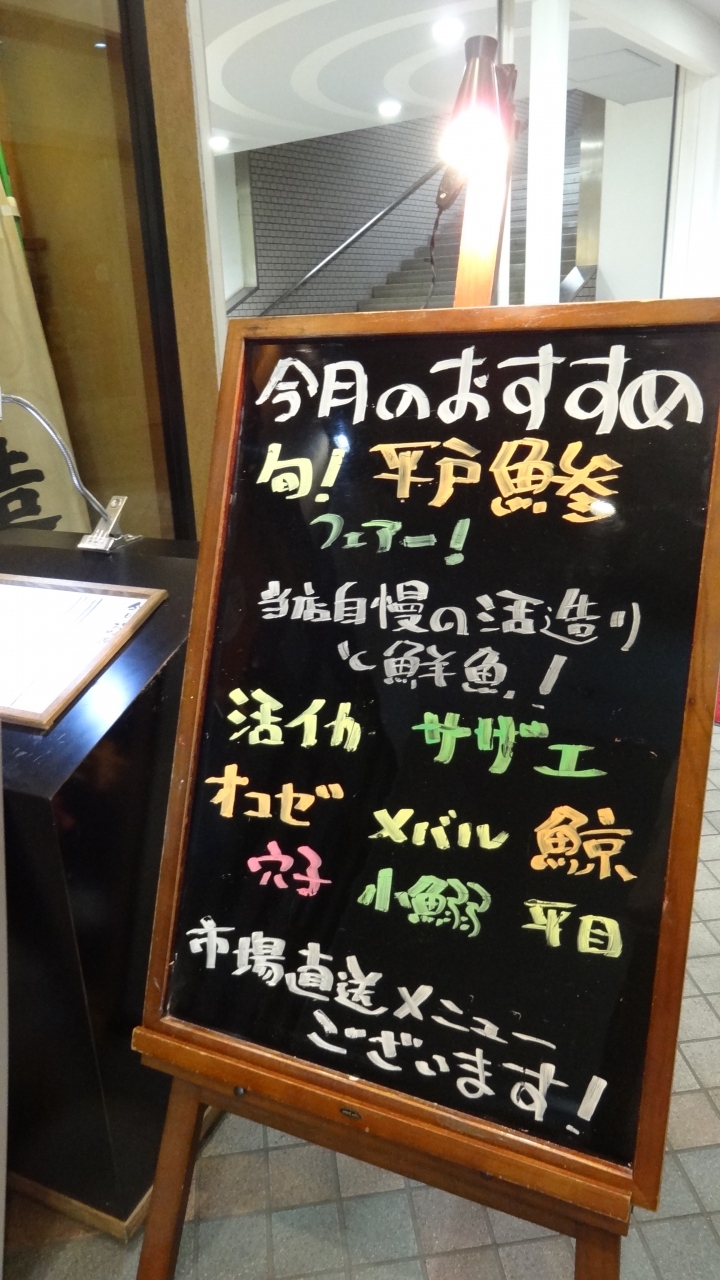 今月のおすすめ
旬! 平戸鯵
フェアー!
当店自慢の活造り
と鮮魚!
活イカ サザエ
オコゼ メバル 鯨
穴子 小鰯 平目
市場直送メニュー
ございます!
造